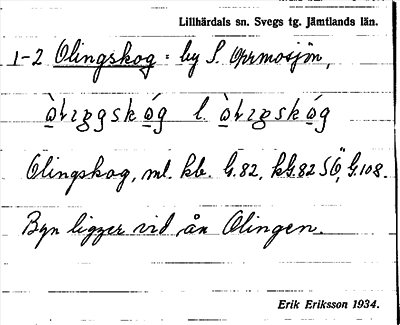 Lillhärdals sn. Svegs tg. Jämtlands län.
1-2 Olingskog = by S. Orrmosjön,
l.
Olingskog, ml. kb. G.82, kG.82 SÖ, G.108.
Byn ligger vid ån Olingen.
Erik Eriksson 1934.